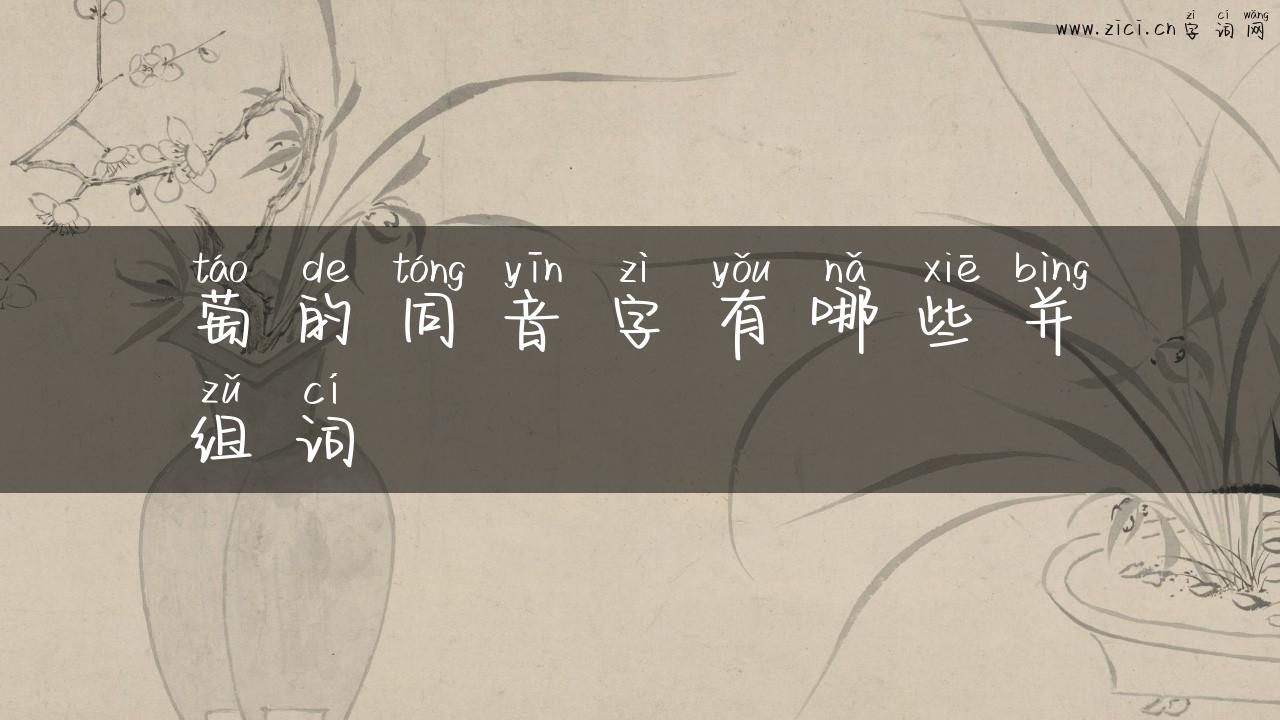 zì cí wǎng
www.zici.cn 字词网
táo de tóng yīn zì yǒu nǎ xiē bìng
萄的同音字有哪些并
zǔ cí
组词